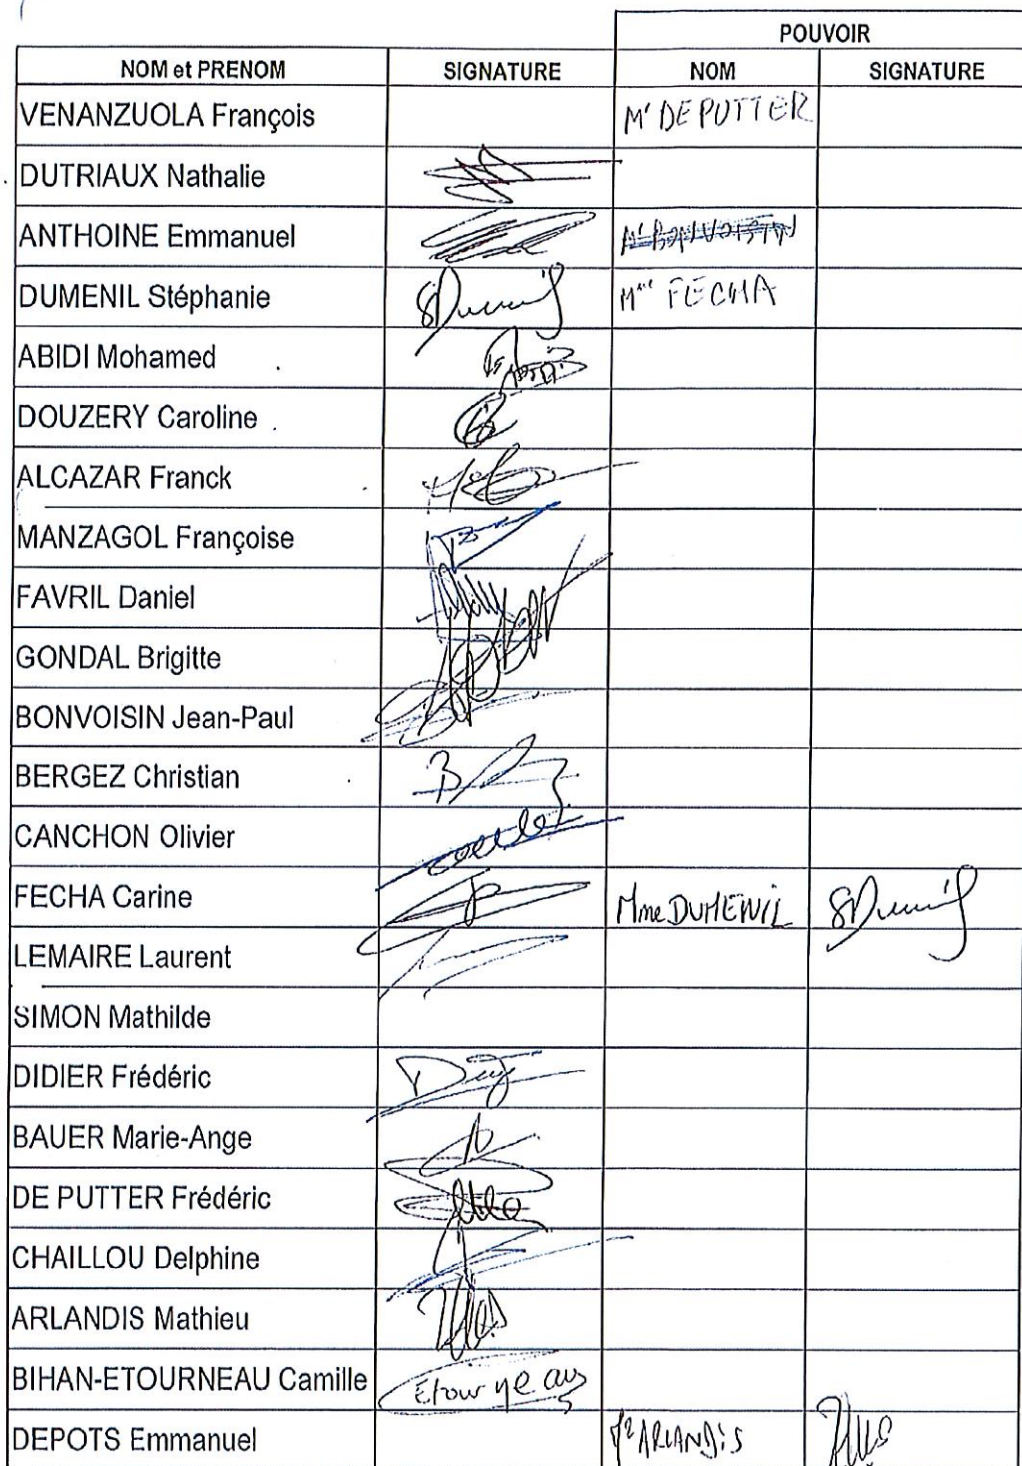 POUVOIR
NOM et PRENOM SIGNATURE NOM SIGNATURE
VENANZUOLA François Mr DE PUTTER
DUTRIAUX Nathalie
ANTHOINE Emmanuel Mr BONVOISIN
DUMENIL Stéphanie SDumenil Mme FECHA
ABIDI Mohamed
DOUZERY Caroline
ALCAZAR Franck
MANZAGOL Françoise
FAVRIL Daniel
GONDAL Brigitte
BONVOISIN Jean-Paul
BERGEZ Christian
CANCHON Olivier
FECHA Carine Mme DUMENIL SDumenil
LEMAIRE Laurent
SIMON Mathilde
DIDIER Frédéric
BAUER Marie-Ange
DE PUTTER Frédéric
CHAILLOU Delphine
ARLANDIS Mathieu
BIHAN-ETOURNEAU Camille Etourneau
DEPOTS Emmanuel ARLANDIS